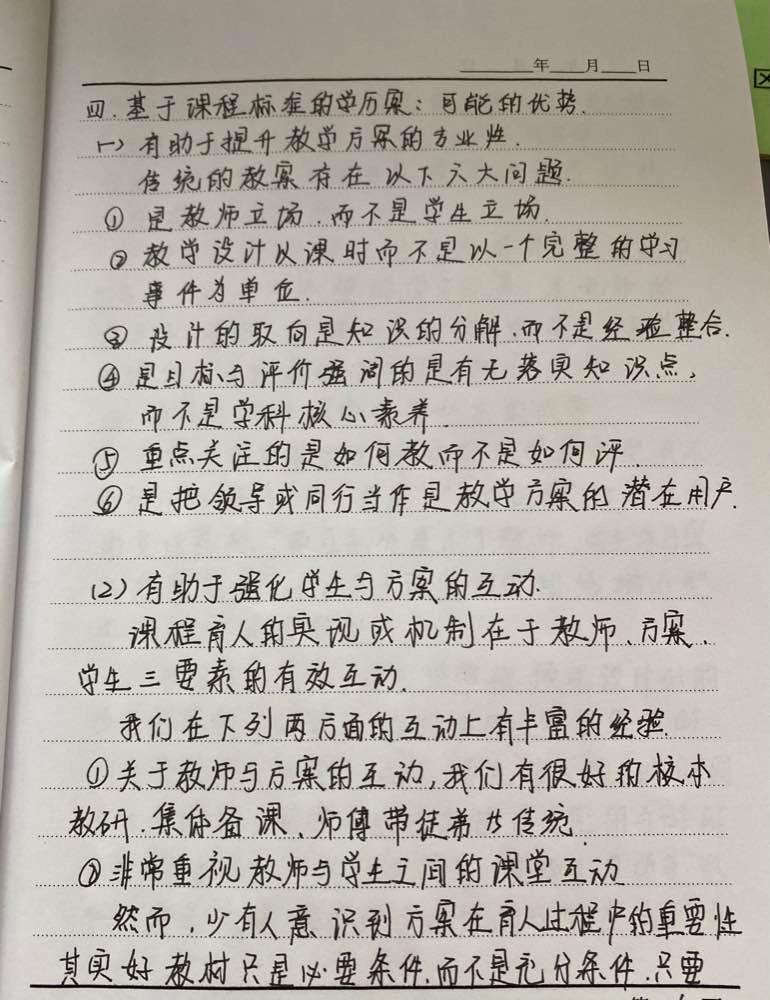 年 月 日
四.基于课程标准的学历案:可能的优势.
(一)有助于提升教学方案的专业性.
传统的教案存在以下六大问题.
①是教师立场.而不是学生立场.
②教学设计以课时而不是以一个完整的学习
事件为单位.
③设计的取向是知识的分解.而不是经验整合.
④是目标与评价强调的是有无落实知识点,
而不是学科核心素养.
⑤重点关注的是如何教而不是如何评.
⑥是把领导或同行当作是教学方案的潜在用户.
(2)有助于强化学生与方案的互动.
课程育人的实现或机制在于教师、方案、
学生三要素的有效互动.
我们在下列两方面的互动上有丰富的经验.
①关于教师与方案的互动,我们有很好的校本
教研.集体备课、师傅带徒弟的传统.
②非常重视教师与学生之间的课堂互动
然而,少有人意识到方案在育人过程中的重要性
其实好教材只是必要条件.而不是充分条件.只要